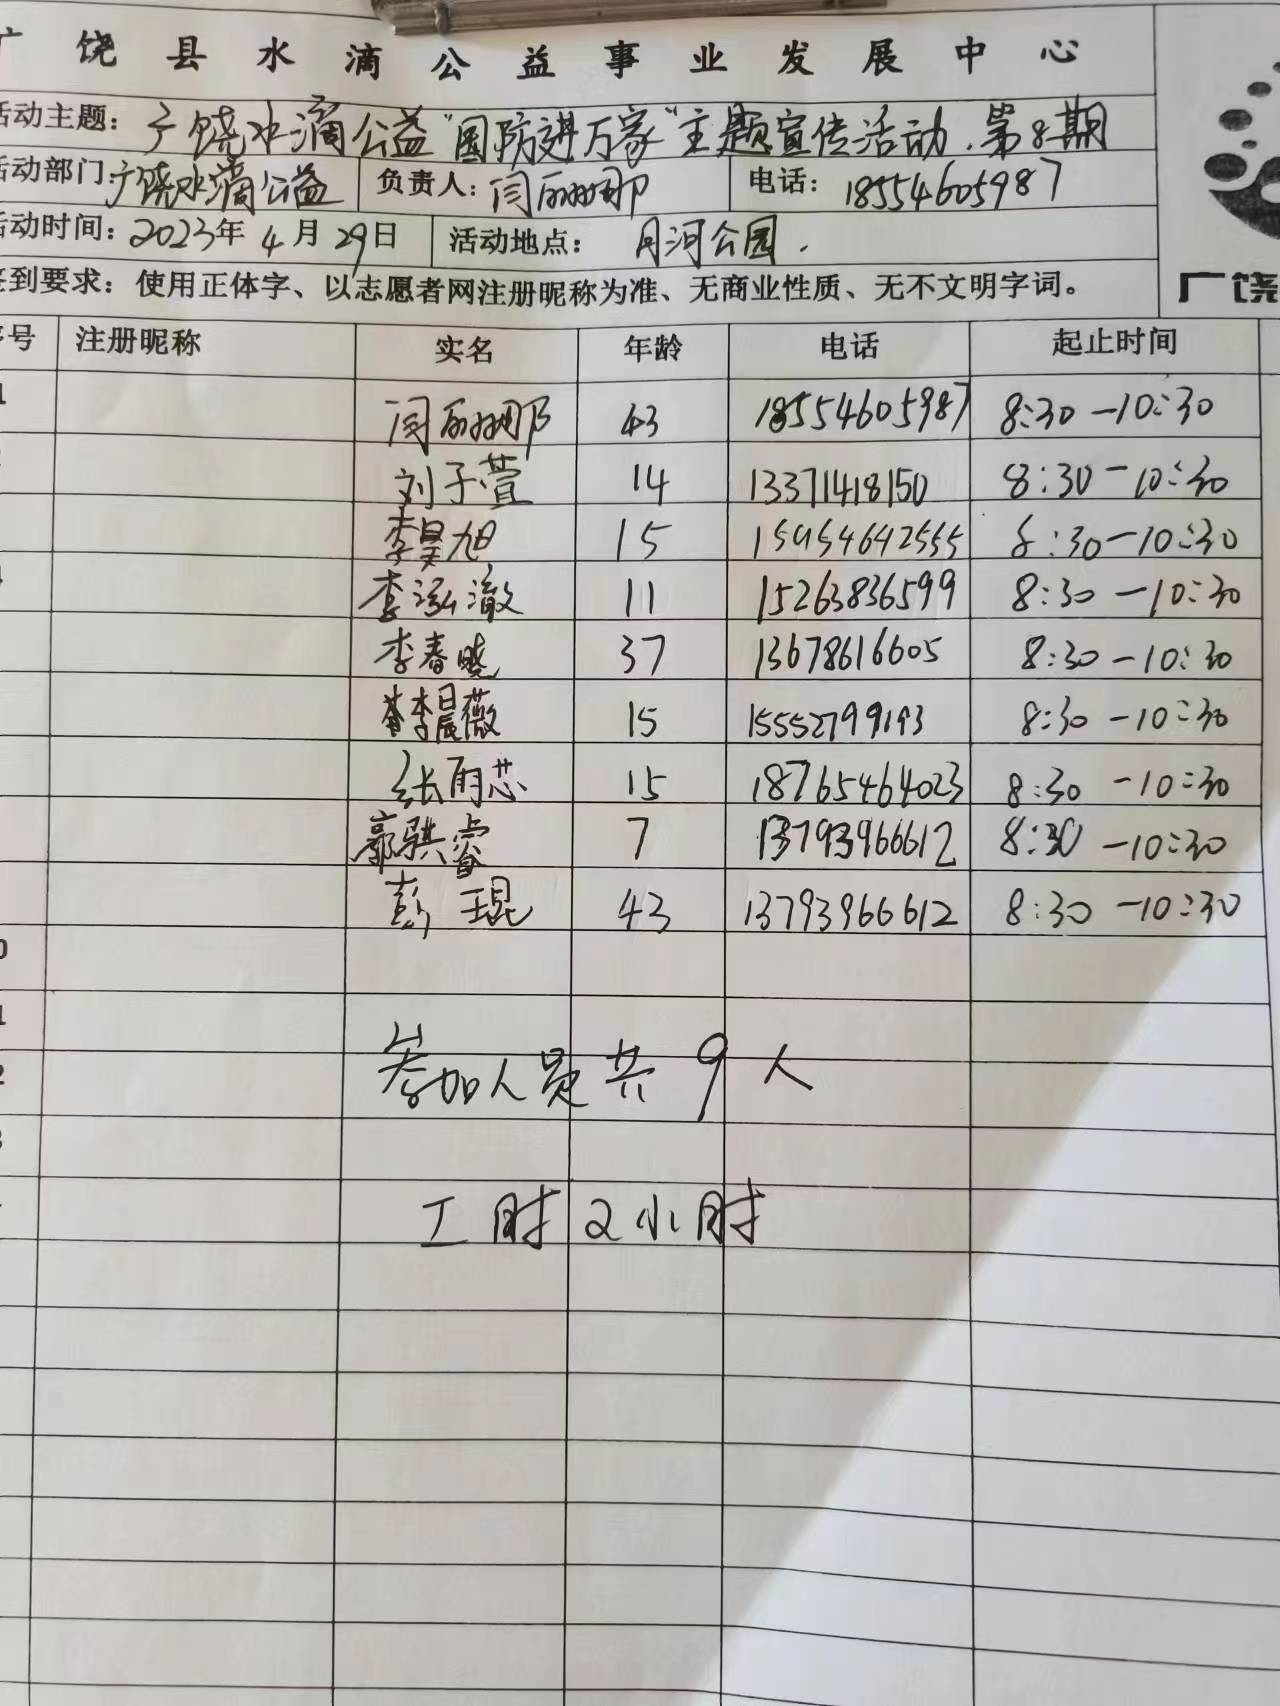 广饶县水滴公益事业发展中心
活动主题：广饶水滴公益"国防进万家"主题宣传活动.第8期
活动部门：广饶水滴公益 负责人：闫丽娜 电话：18554605987
活动时间：2023年4月29日 活动地点：月河公园.
签到要求：使用正体字、以志愿者网注册昵称为准、无商业性质、无不文明字词。
广饶
序号 注册昵称 实名 年龄 电话 起止时间
1 闫丽娜 43 18554605987 8:30-10:30
刘子萱 14 13371418150 8:30-10:30
李昊旭 15 15954642555 8:30-10:30
李泓澈 11 15263836599 8:30-10:30
李春晓 37 13678616605 8:30-10:30
李晨薇 15 15552799193 8:30-10:30
张雨芯 15 18765464023 8:30-10:30
郭骐睿 7 13793966612 8:30-10:30
彭琨 43 13793966612 8:30-10:30
0
1
2
参加人员共9人
3
工时2小时